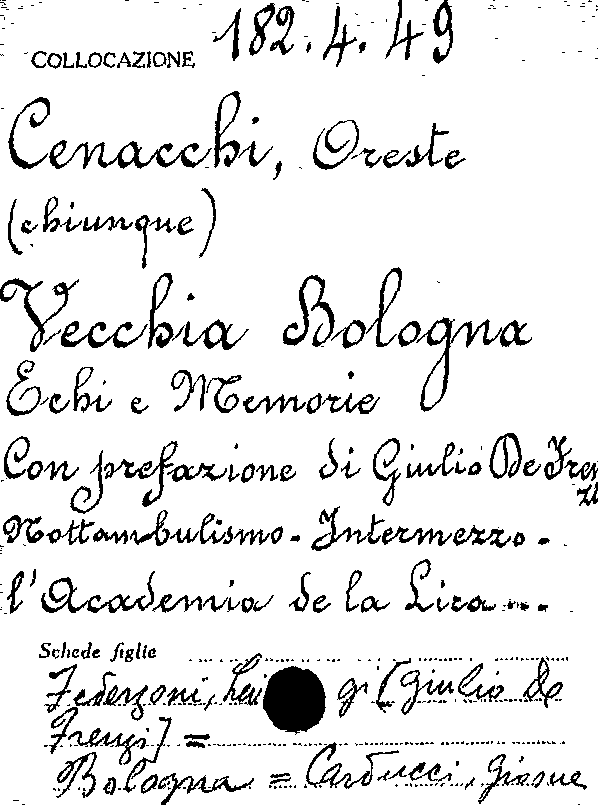 COLLOCAZIONE 182.4.49
Cenacchi, Oreste
(chiunque)
Vecchia Bologna
Echi e Memorie
Con prefazione di Giulio De Fren
zi
Nottambulismo - Intermezzo -
l'Academia de la Lira...
Schede figlie
Federzoni, Lui gi [Giulio de
Frenzi] =
Bologna = Carducci, Giosue